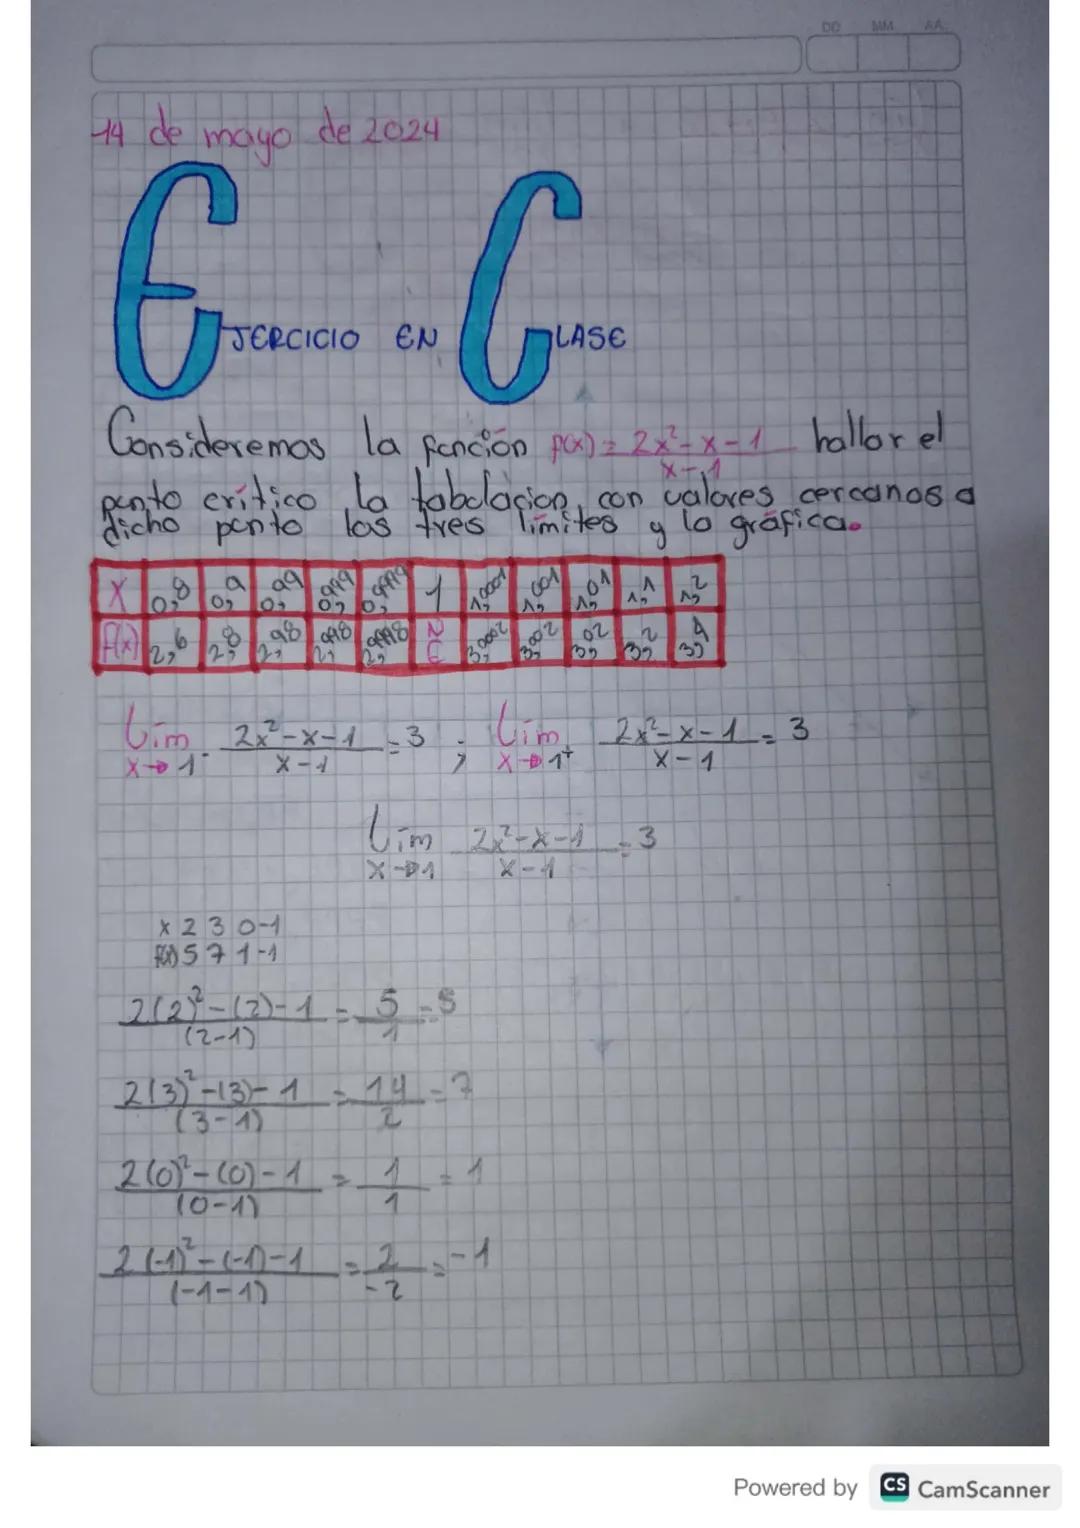 DD MM AA
14 de mayo de 2024
EJERCICIO EN CLASE
Consideremos la función f(x) = 2x²-x-1 / x-1 hallar el
punto crítico la tabulacion con valores cercanos a
dicho punto los tres limites y la gráfica.
x 0,8 0,9 0,99 0,999 0,9999 1 1,0001 1,001 1,01 1,1 1,2
f(x) 2,6 2,8 2,98 2,998 2,9998 NE 3,0002 3,002 3,02 3,2 3,4
Lim x→1⁻ 2x²-x-1 / x-1 = 3 ; Lim x→1⁺ 2x²-x-1 / x-1 = 3
Lim x→1 2x²-x-1 / x-1 = 3
x 2 3 0 -1
f(x) 5 7 1 -1
2(2)²-(2)-1 / (2-1) = 5/1 = 5
2(3)²-(3)-1 / (3-1) = 14/2 = 7
2(0)²-(0)-1 / (0-1) = 1/1 = 1
2(-1)²-(-1)-1 / (-1-1) = 2/-2 = -1
Powered by CS CamScanner